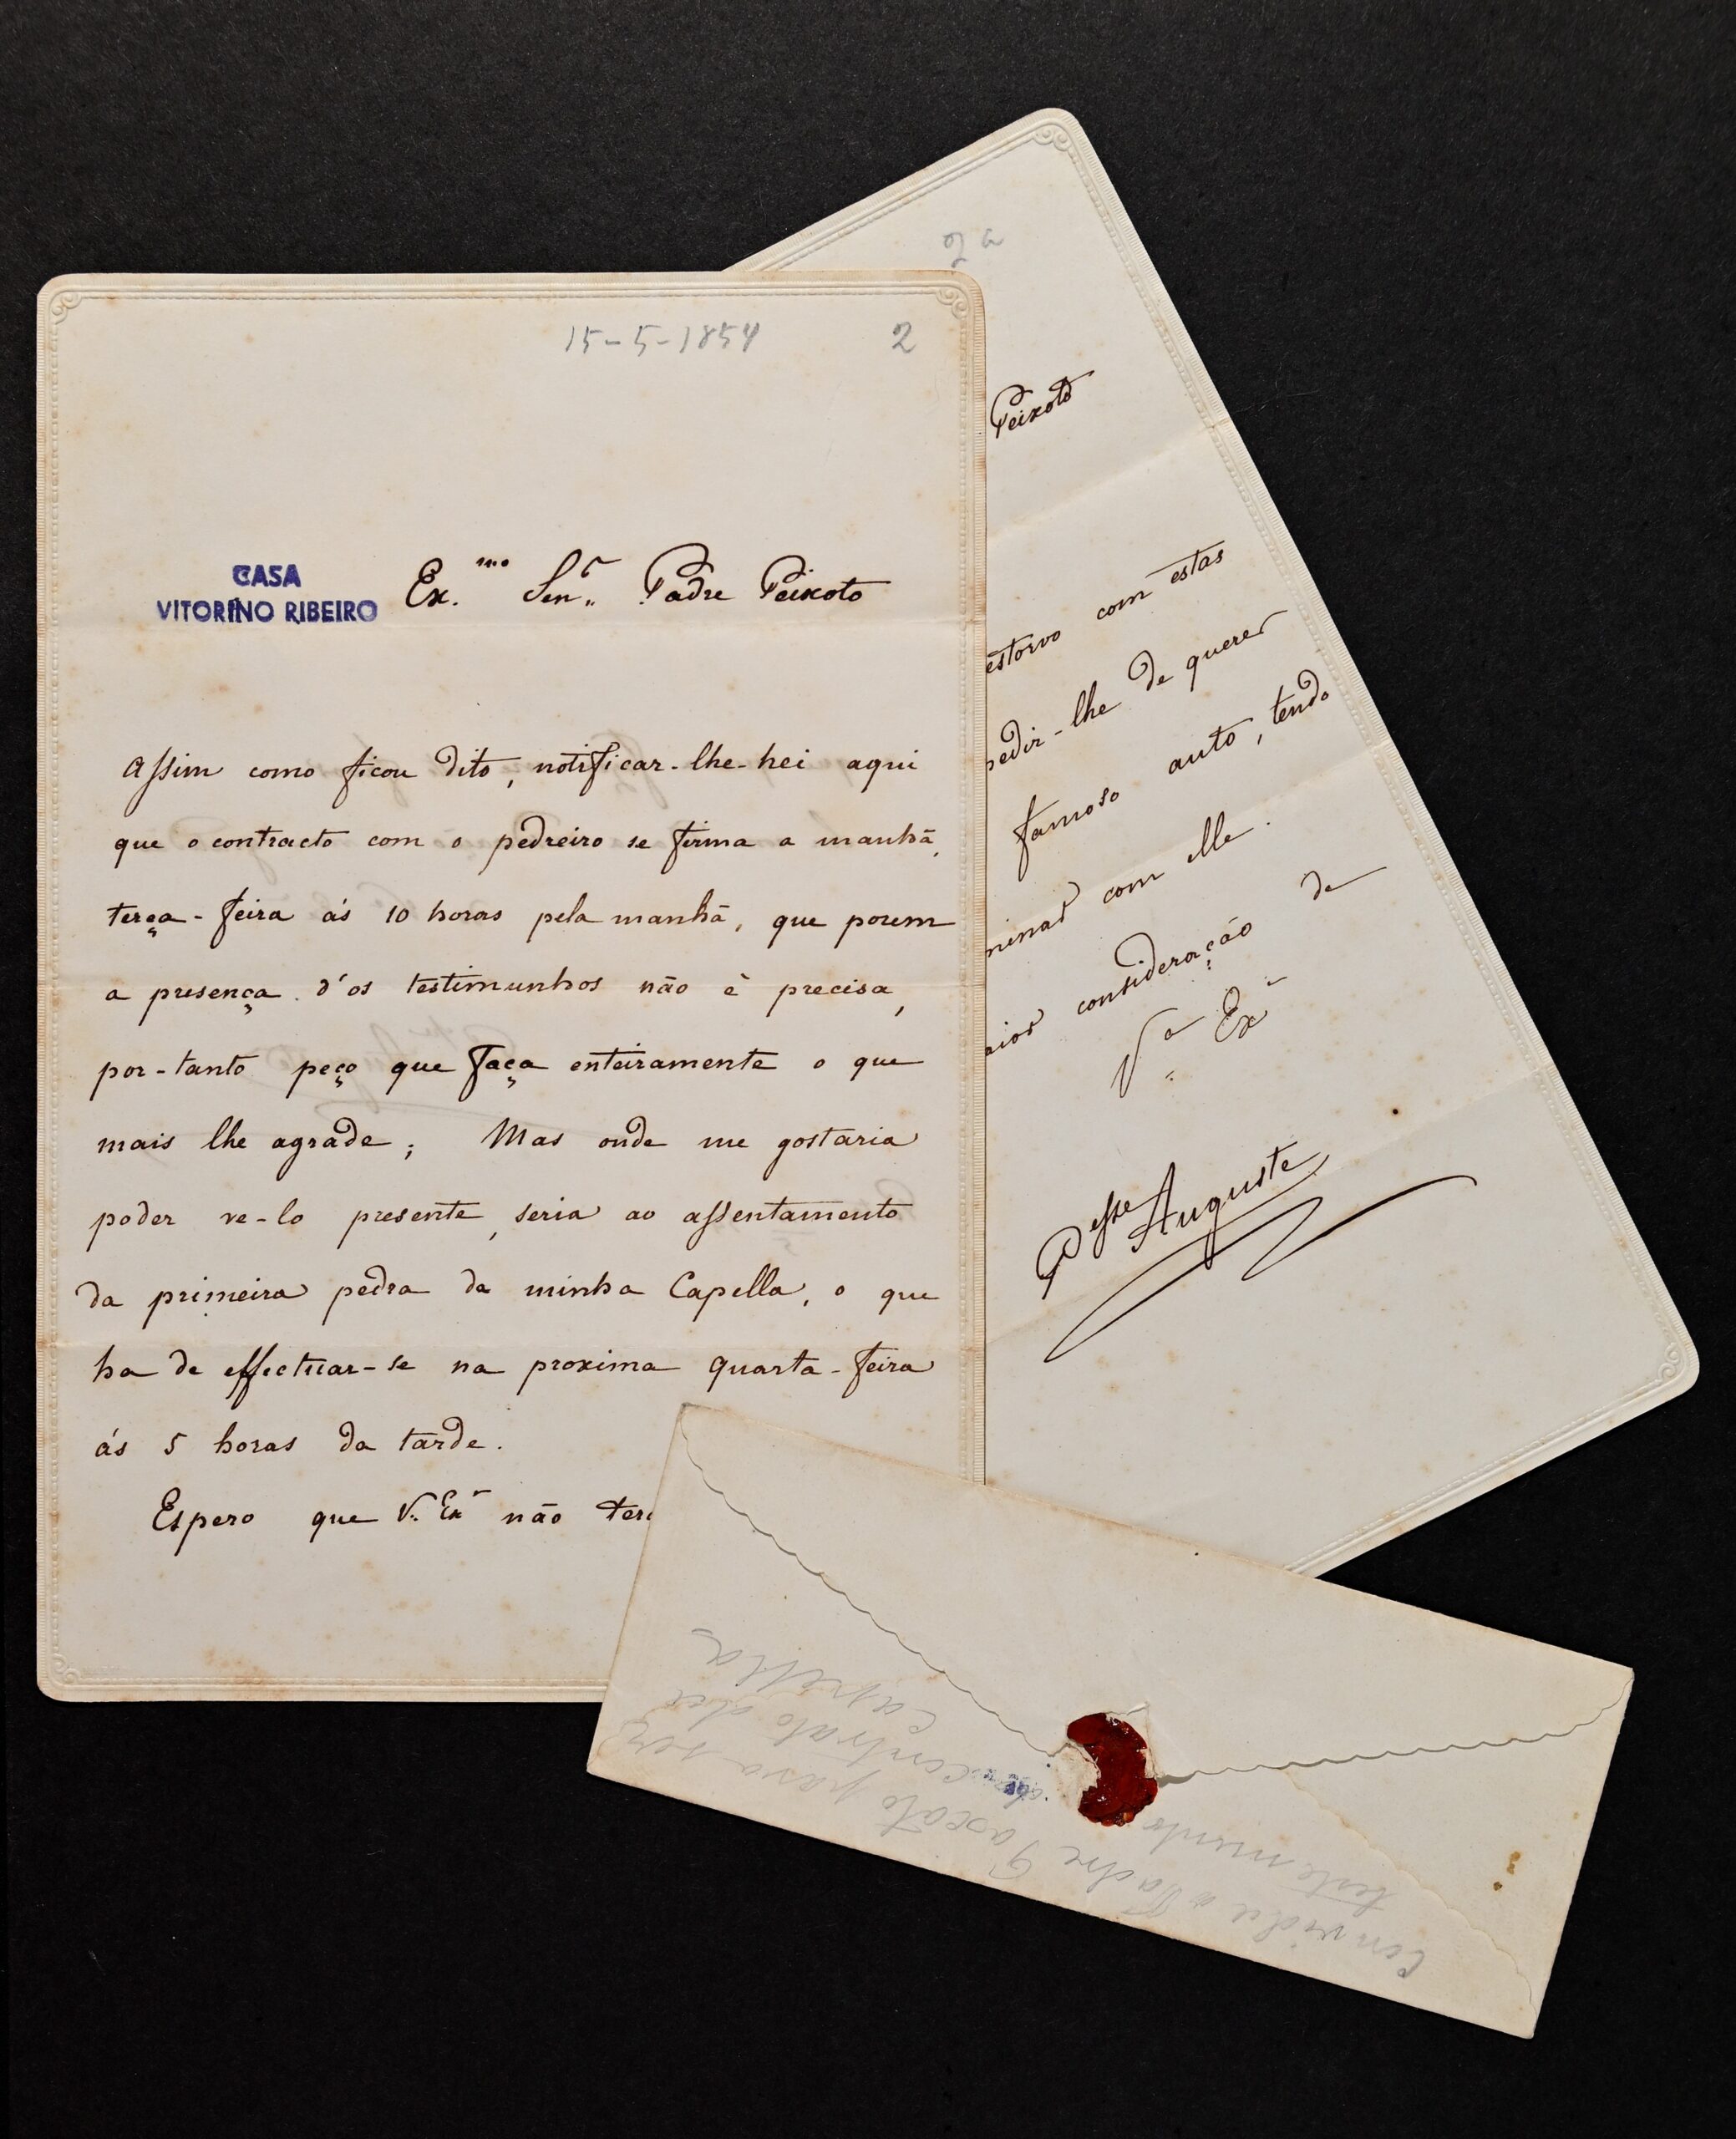 15-5-1854 2
CASA
VITORINO RIBEIRO
Ex.mo Senr. Padre Peixoto
Assim como ficou dito, notificar-lhe-hei aqui
que o contracto com o pedreiro se firma a manhã,
terça-feira ás 10 horas pela manhã, que porem
a presença d'os testimunhos não è precisa,
por-tanto peço que faça enteiramente o que
mais lhe agrade; Mas onde me gostaria
poder ve-lo presente, seria ao assentamento
da primeira pedra da minha Capella, o que
ha de effectuar-se na proxima quarta-feira
ás 5 horas da tarde.
Espero que V. Exa não
Peixoto
estorvo com estas
pedir-lhe de querer
famoso auto, tendo
com elle.
consideração de
Va Exa
Auguste
Convida o Padre para ser
testemunho contrato da
capella